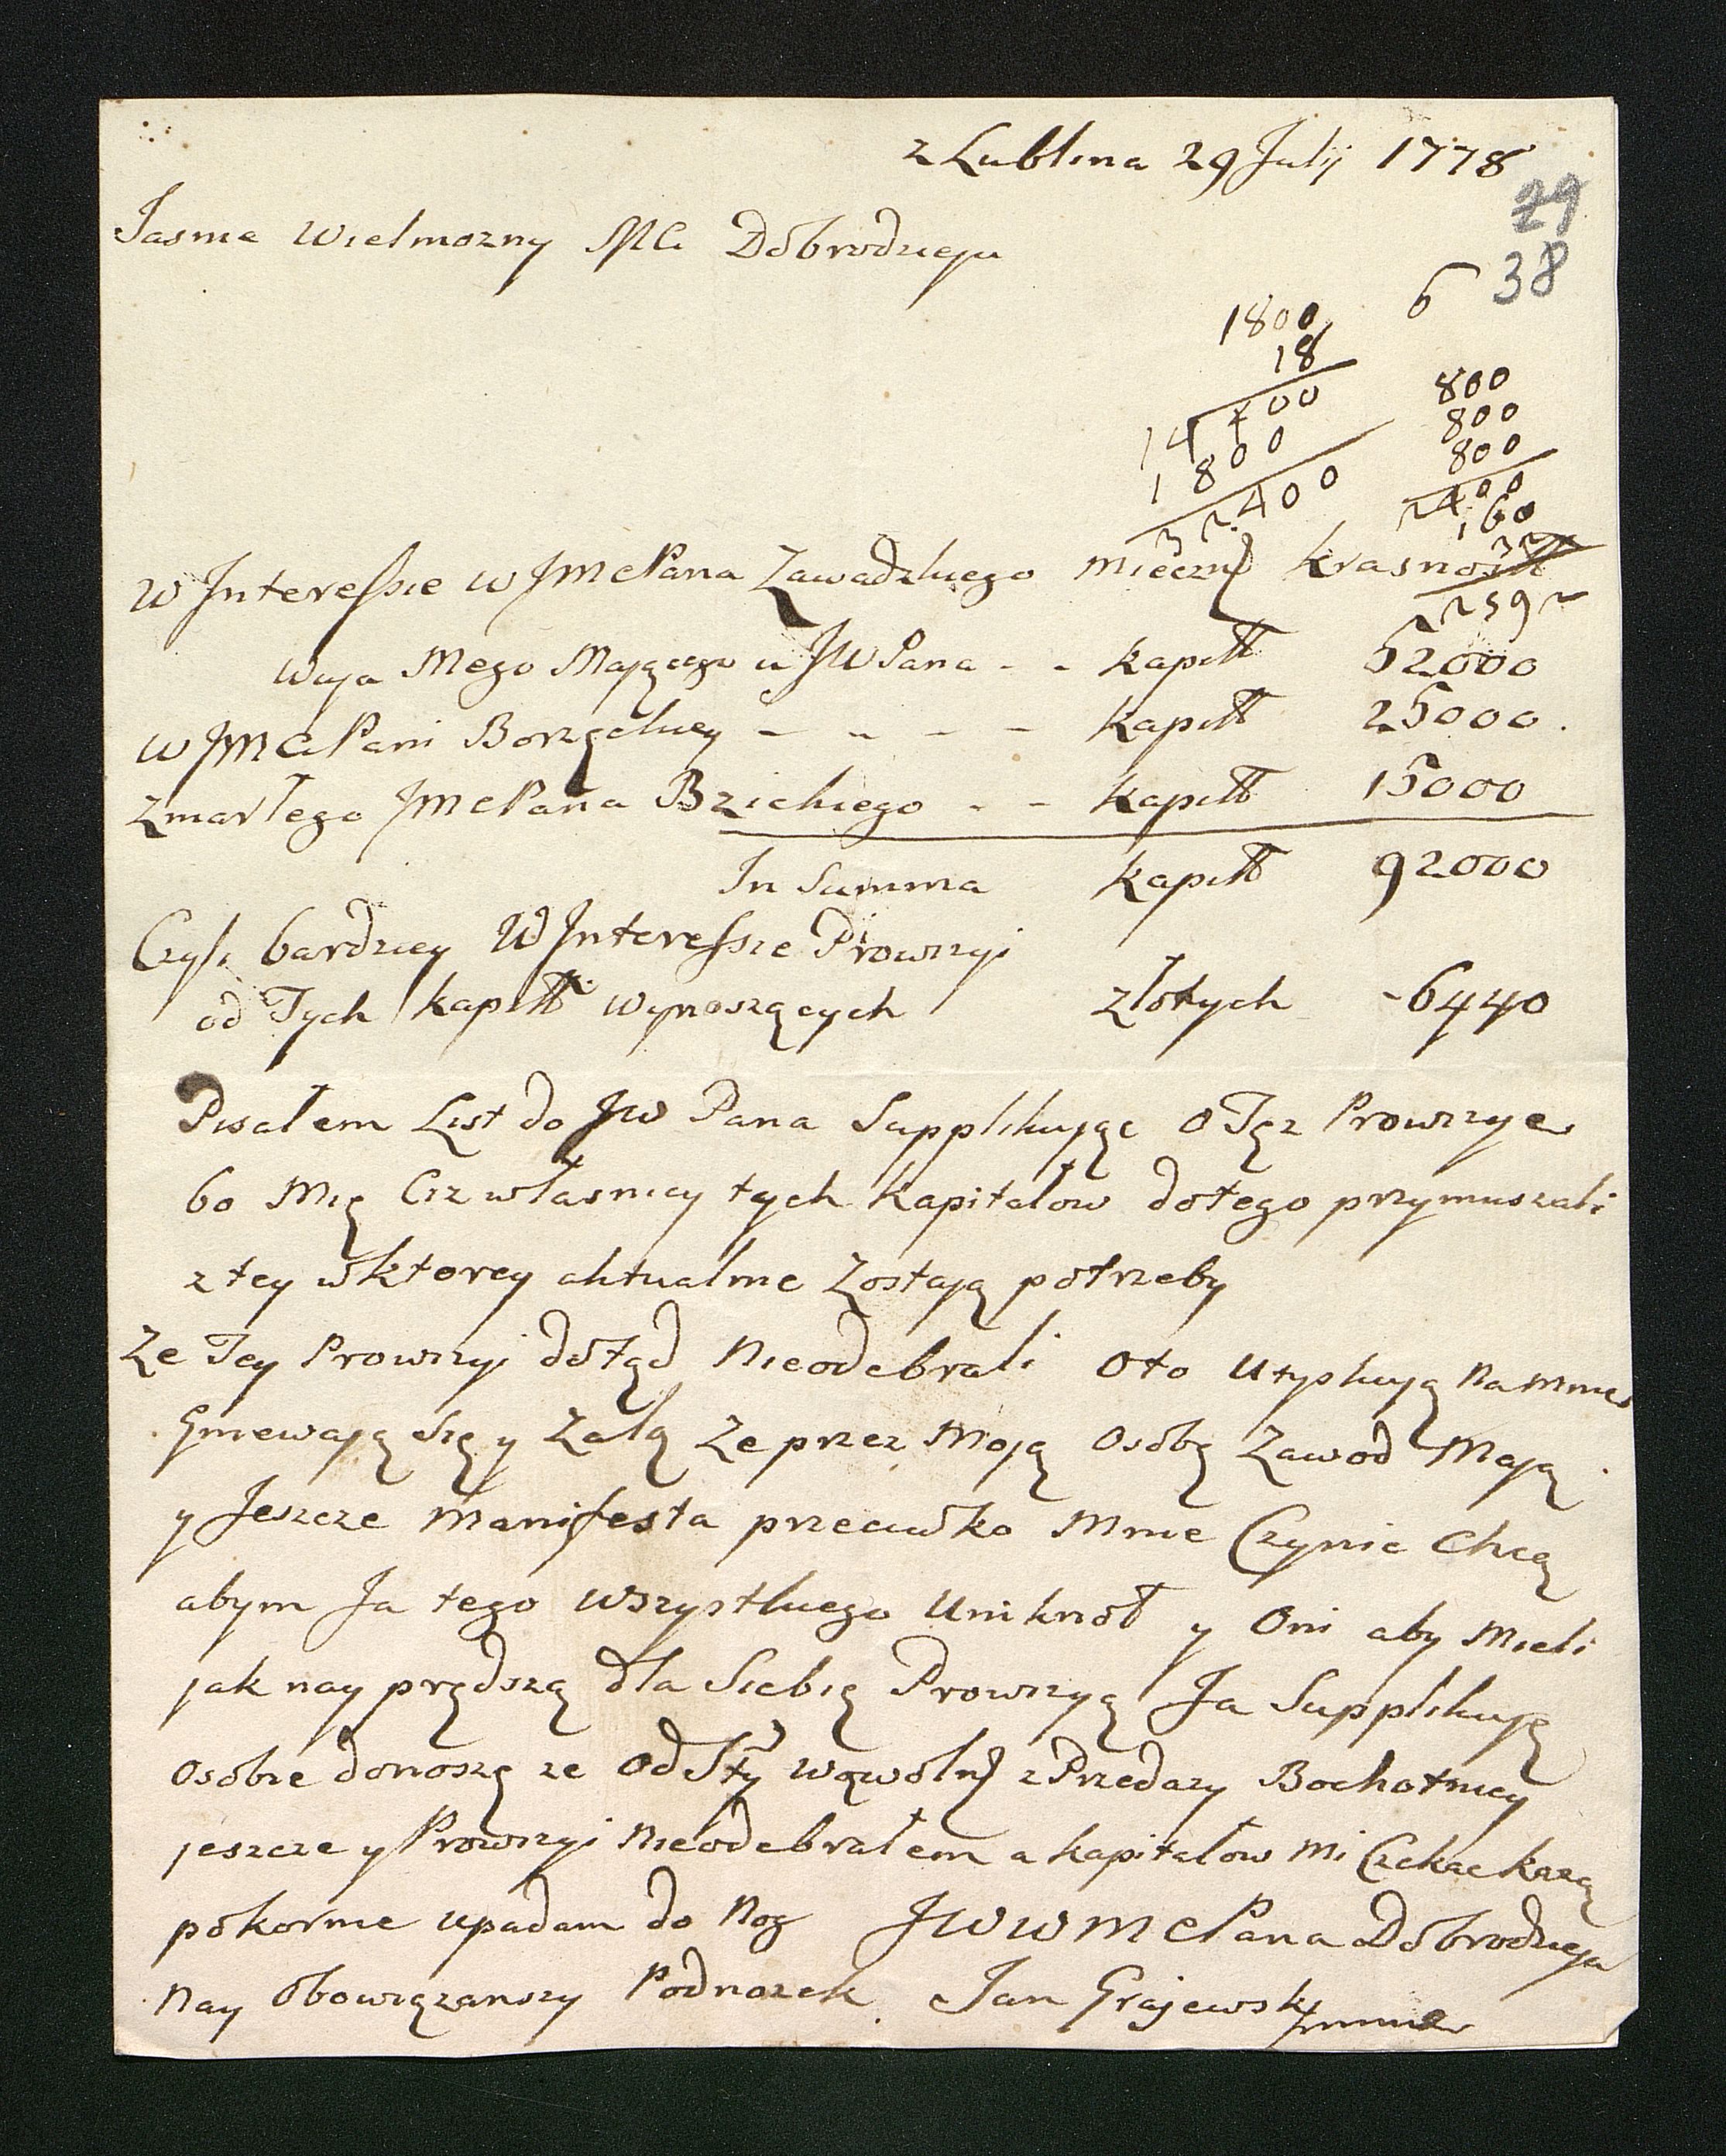 z Lublina 29 Julij 1778
29
38
Jasnie Wielmozny Mci Dobrodzieju
6
1800
18
14400
1800
32400
800
800
800
2400
160
32
2592
W Interessie W JMcPana Zawadzkiego Mieczn Krasnost
Wuja Mego Maiącego u JWPana - - Kapitł 52000
W JMCi Pani Borzęckiey - - - - Kapitł 25000.
Zmarłego JMcPana Bzickiego - - Kapitł 15000
In Summa Kapitł 92000
Czyli bardziey W Interessie Prowizyi
od Tych Kapitł wynoszących złotych -6440
Pisałem List do JW Pana Supplikując o Tęz Prowizye
bo Mię Ciz własnicy tych Kapitałow do tego przymuszali
z tey w ktorey aktualnie Zostają potrzeby
Ze Tey Prowizyi dotąd Nieodebrali oto Utyskują Namnie
Gniewają się y Zalą Ze przez Moją Osobę Zawod Mają
y Jeszcze Manifesta przeciwko Mnie Czynic Chcą
abym Ja tego Wszystkiego Uniknoł y Oni aby Mieli
jak nay prędszą dla Siebię Prowizyą Ja Supplikuję
Osobie donoszę ze Od Sty Wąwoln z Przedazy Bochotnicy
jeszcze y Prowizyi Nieodebrałem a Kapitałow Mi Czekac Kazą
pokornie upadam do Nog JWWMcPana Dobrodzieja
Nay Obowiązanszy Podnozek Jan Grajewski